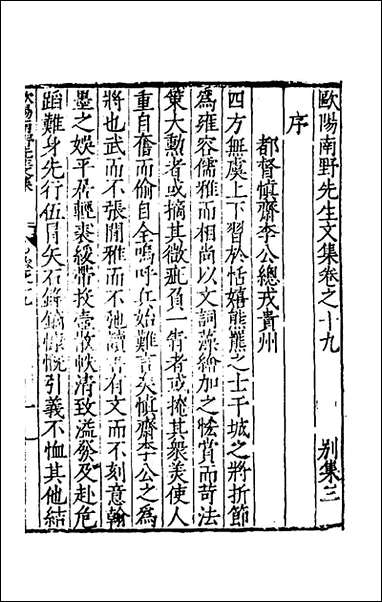 歐陽南野先生文集卷之十九 別集三
序
都督慎齋李公總戎貴州
四方無虞上下習於恬嬉熊羆之士干城之將折節
為雍容儒雅而相尚以文詞藻繪加之恡賞而苛法
策大勳者或摘其微疵負一眚者或掩其衆美使人
重自奮而偷自全嗚呼兵始難言矣慎齋李公之為
將也武而不張閒雅而不弛讀書有文而不刻意翰
墨之娛平居輕裘緩帶投壺散帙清致溢發及赴危
蹈難身先行伍冒矢石鋒鏑慷慨引義不恤其他結